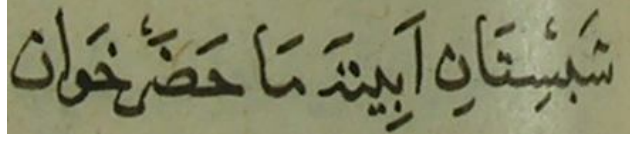 شَبِسْتَانِ اَبِينَدَ مَا حَضَرْ خَوَان